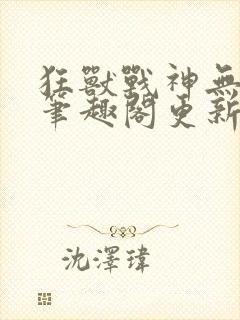 狂獸戰神無
筆趣閣更新
沈澤瑋